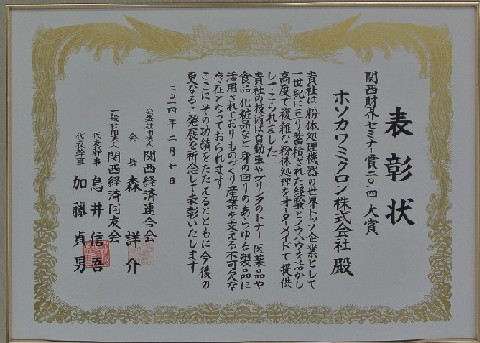 表彰状
関西財界セミナー賞二〇一四 大賞
ホソカワミクロン株式会社 殿
貴社は粉体処理機器の世界トップ企業として
一世紀にわたり蓄積された経験とノウハウを活かし
高度で複雑な粉体処理をオーダーメイドで提供
してこられました
貴社の技術は自動車やプリンタのトナー 医薬品や
食品 化粧品など身の回りのあらゆる製品に
活用されておりものづくり産業を支える不可欠な
存在となっておられます
ここにその功績をたたえるとともに今後の
更なるご発展を祈念して表彰いたします
二〇一四年 二月 七日
公益社団法人 関西経済連合会
会長 森 詳介
一般社団法人 関西経済同友会
代表幹事 鳥井信吾
代表幹事 加藤貞男